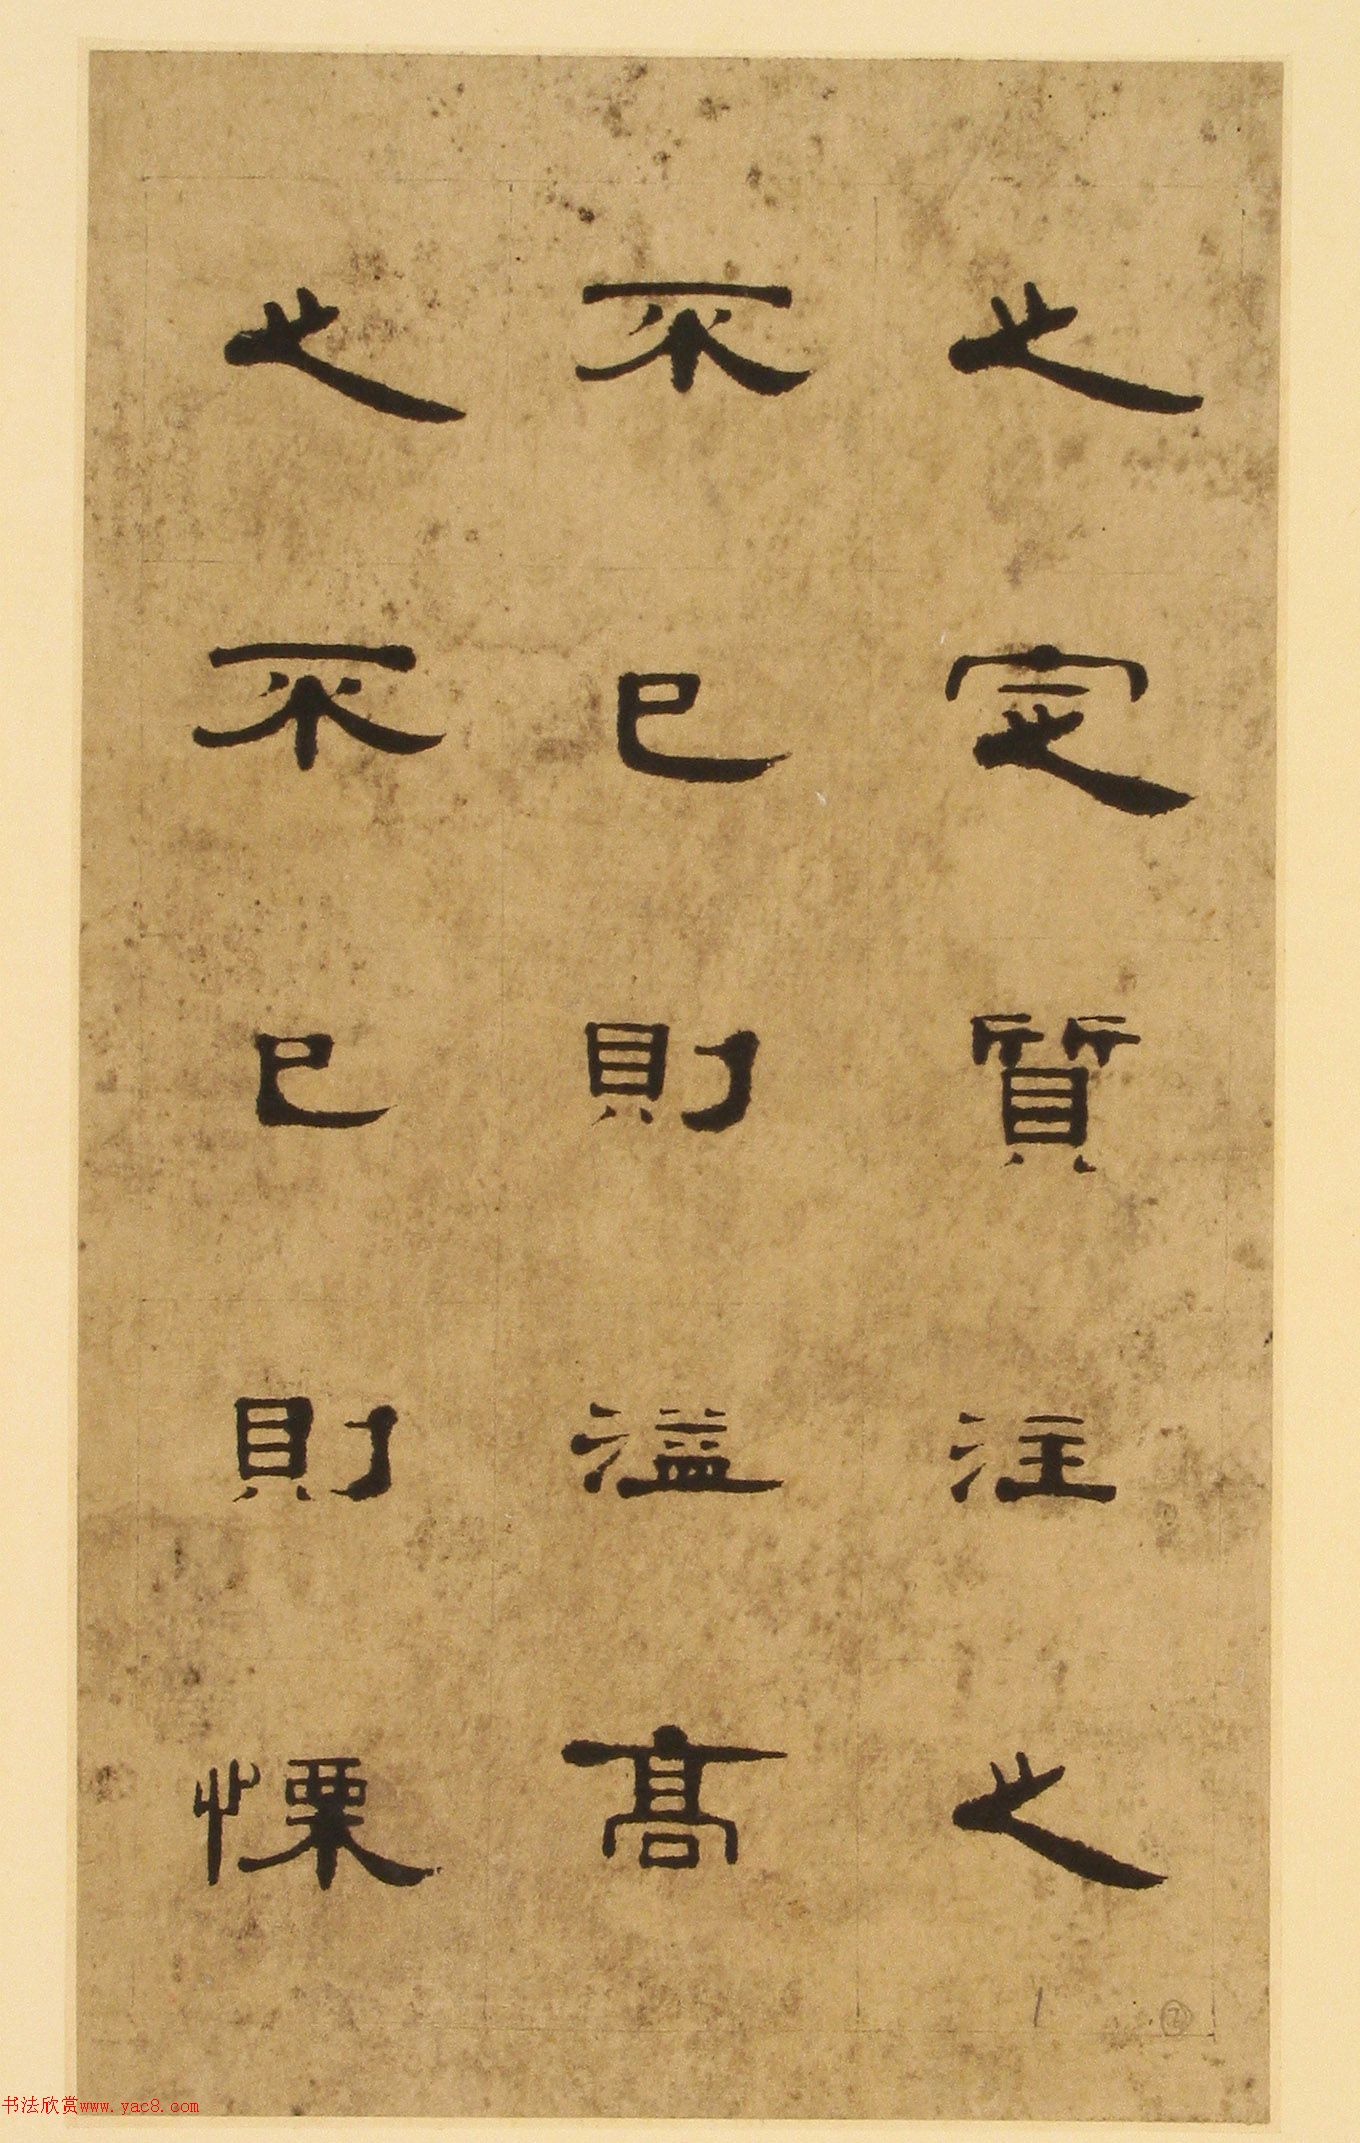 之定質注之
不已則溢高
之不已則慄
书法欣赏www.yac8.com